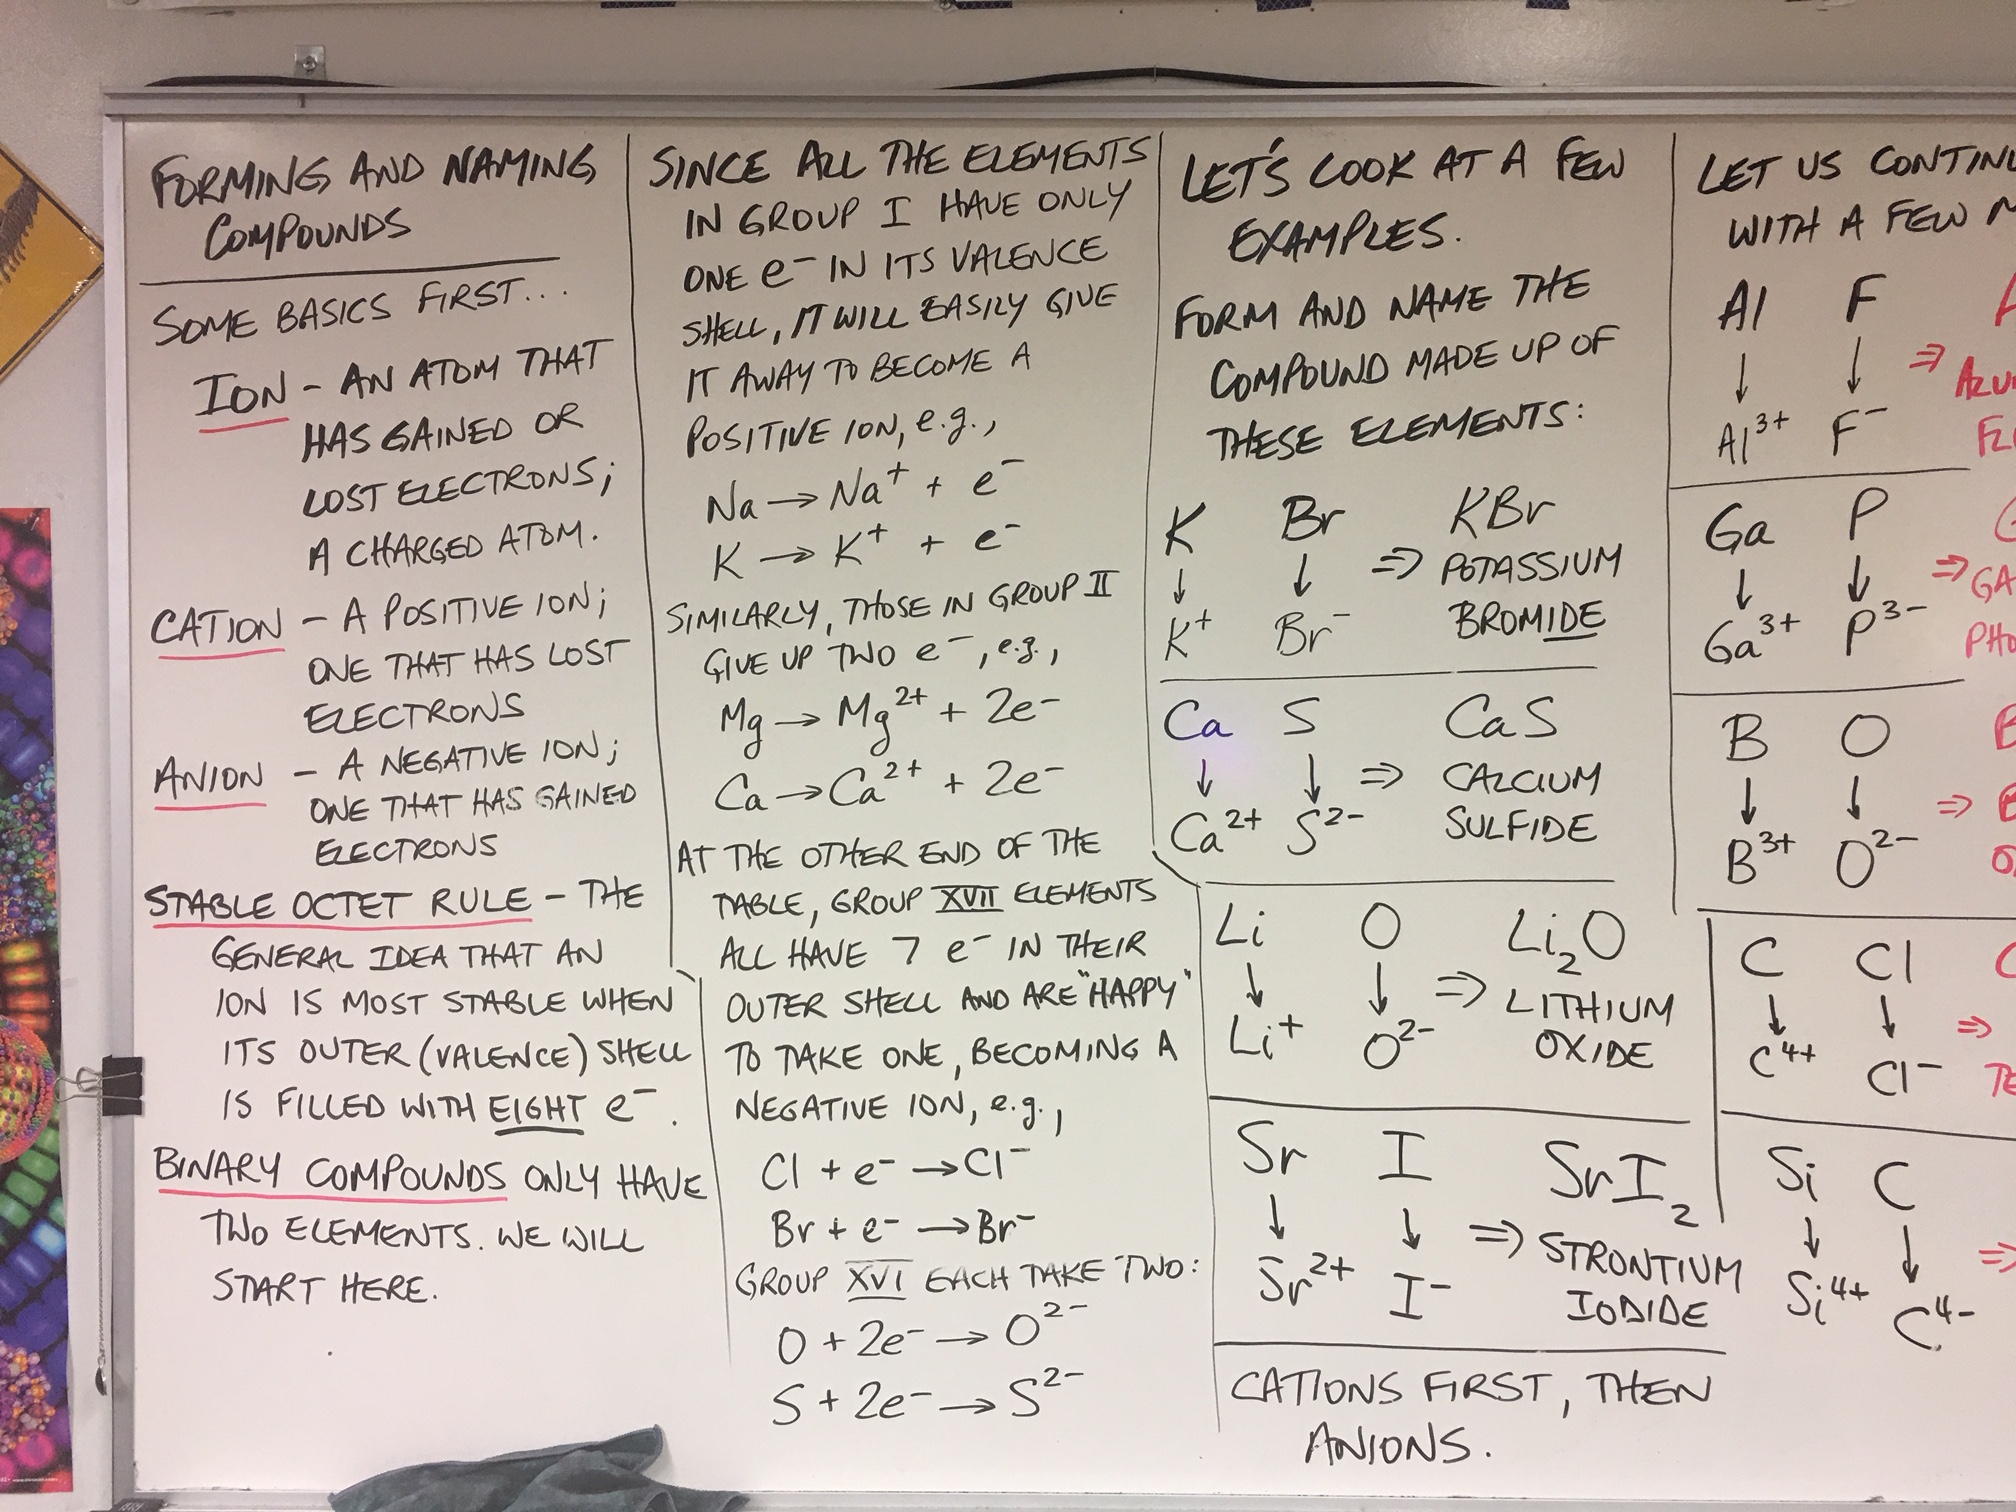 FORMING AND NAMING
COMPOUNDS
SOME BASICS FIRST...
ION - AN ATOM THAT
HAS GAINED OR
LOST ELECTRONS;
A CHARGED ATOM.
CATION - A POSITIVE ION;
ONE THAT HAS LOST
ELECTRONS
ANION - A NEGATIVE ION;
ONE THAT HAS GAINED
ELECTRONS
STABLE OCTET RULE - THE
GENERAL IDEA THAT AN
ION IS MOST STABLE WHEN
ITS OUTER (VALENCE) SHELL
IS FILLED WITH EIGHT e⁻.
BINARY COMPOUNDS ONLY HAVE
TWO ELEMENTS. WE WILL
START HERE.
SINCE ALL THE ELEMENTS
IN GROUP I HAVE ONLY
ONE e⁻ IN ITS VALENCE
SHELL, IT WILL EASILY GIVE
IT AWAY TO BECOME A
POSITIVE ION, e.g.,
Na → Na⁺ + e⁻
K → K⁺ + e⁻
SIMILARLY, THOSE IN GROUP II
GIVE UP TWO e⁻, e.g.,
Mg → Mg²⁺ + 2e⁻
Ca → Ca²⁺ + 2e⁻
AT THE OTHER END OF THE
TABLE, GROUP XVII ELEMENTS
ALL HAVE 7 e⁻ IN THEIR
OUTER SHELL AND ARE "HAPPY"
TO TAKE ONE, BECOMING A
NEGATIVE ION, e.g.,
Cl + e⁻ → Cl⁻
Br + e⁻ → Br⁻
GROUP XVI EACH TAKE TWO:
O + 2e⁻ → O²⁻
S + 2e⁻ → S²⁻
LET'S LOOK AT A FEW
EXAMPLES.
FORM AND NAME THE
COMPOUND MADE UP OF
THESE ELEMENTS:
K Br KBr
↓ ↓ ⇒ POTASSIUM
K⁺ Br⁻ BROMIDE
Ca S CaS
↓ ↓ ⇒ CALCIUM
Ca²⁺ S²⁻ SULFIDE
Li O Li₂O
↓ ↓ ⇒ LITHIUM
Li⁺ O²⁻ OXIDE
Sr I SrI₂
↓ ↓ ⇒ STRONTIUM
Sr²⁺ I⁻ IODIDE
CATIONS FIRST, THEN
ANIONS.
LET US
WITH A FEW
Al F
↓ ↓ ⇒
Al³⁺ F⁻
Ga P
↓ ↓ ⇒
Ga³⁺ P³⁻
B O
↓ ↓ ⇒
B³⁺ O²⁻
C Cl
↓ ↓ ⇒
C⁴⁺ Cl⁻
Si C
↓ ↓ ⇒
Si⁴⁺ C⁴⁻